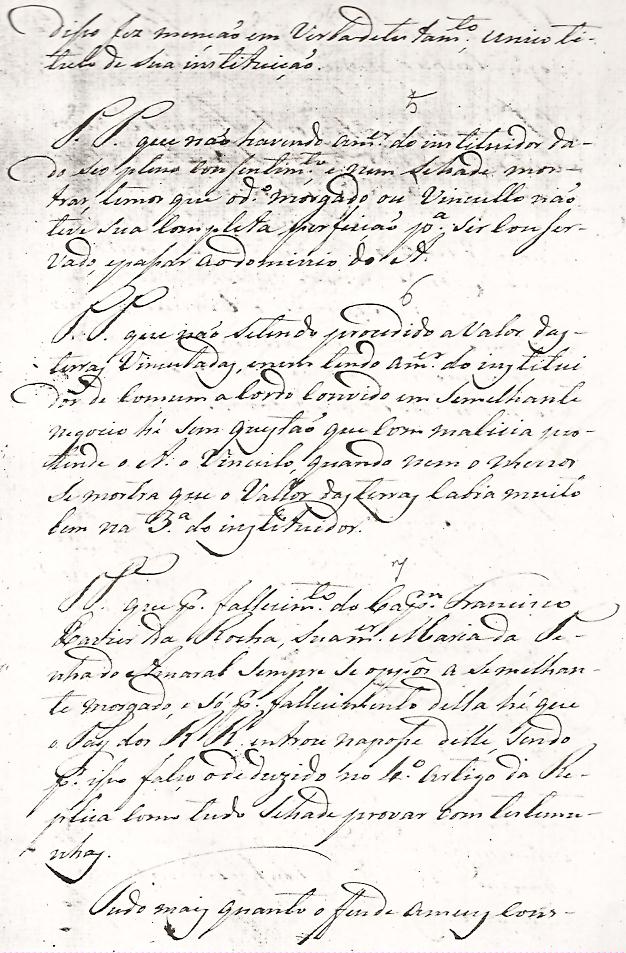 disso fez menção em Verba de testam.to unico ti-
tulo de sua instituição.
5
P. P. que não havendo a m.er do instituidor da-
do seo pleno consentim.to e nem se hade mos-
trar, temos que o d.o morgado ou Vincullo não
teve sua completa perfeicão p.a ser conser-
vado, e passar ao dominio do A.
6
P. P. que não se tendo procedido a Valor das
terras Vinculladas, e nem tendo a m.er do institui
dor de comum acordo convido em semelhante
negocio hé sem questão que com malicia pre-
tende o A. o Vinculo, quando nem o menos
se mostra que o Vallor das terras cabia muito
bem na 3.a do instituidor.
7
P. P. que p. fallecim.to do Cap.m Francisco
Xavier da Rocha, sua m.er Maria da Pe-
nha do Amaral sempre se oppôs a semelhan-
te morgado, e só p. fallecimento della hé que
o Pay dos RR. entrou na posse delle, sendo
p. isso falço o deduzido no 4.o artigo da Re-
plica como tudo se hade provar com testemu-
nhas.
Tudo mais quanto offende a meus cons-